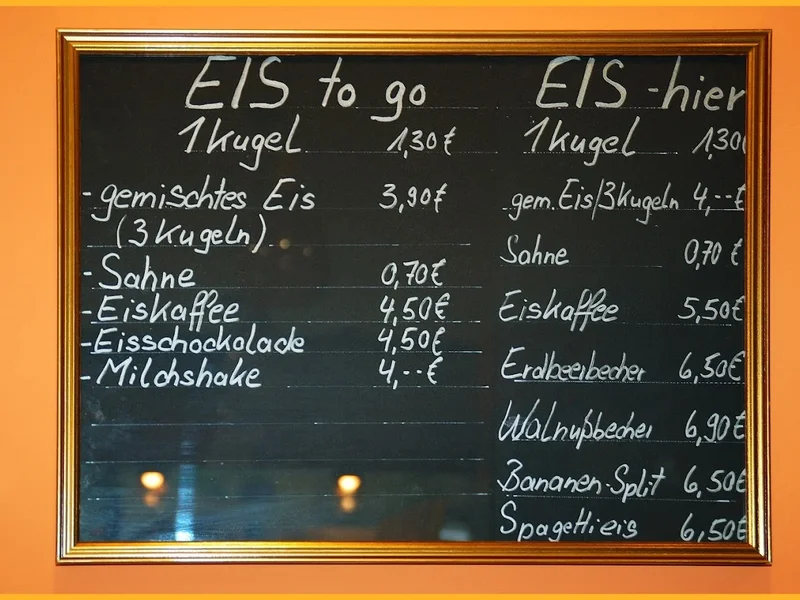 EIS to go
1 Kugel 1,30 €
- gemischtes Eis 3,90 €
(3 Kugeln)
- Sahne 0,70 €
- Eiskaffee 4,50 €
- Eisschockolade 4,50 €
- Milchshake 4,-- €
EIS - hier
1 Kugel 1,30
gem. Eis/3 Kugeln 4,-- €
Sahne 0,70 €
Eiskaffee 5,50 €
Erdbeerbecher 6,50 €
Walnußbecher 6,90 €
Bananen-Split 6,50 €
Spagettieis 6,50 €